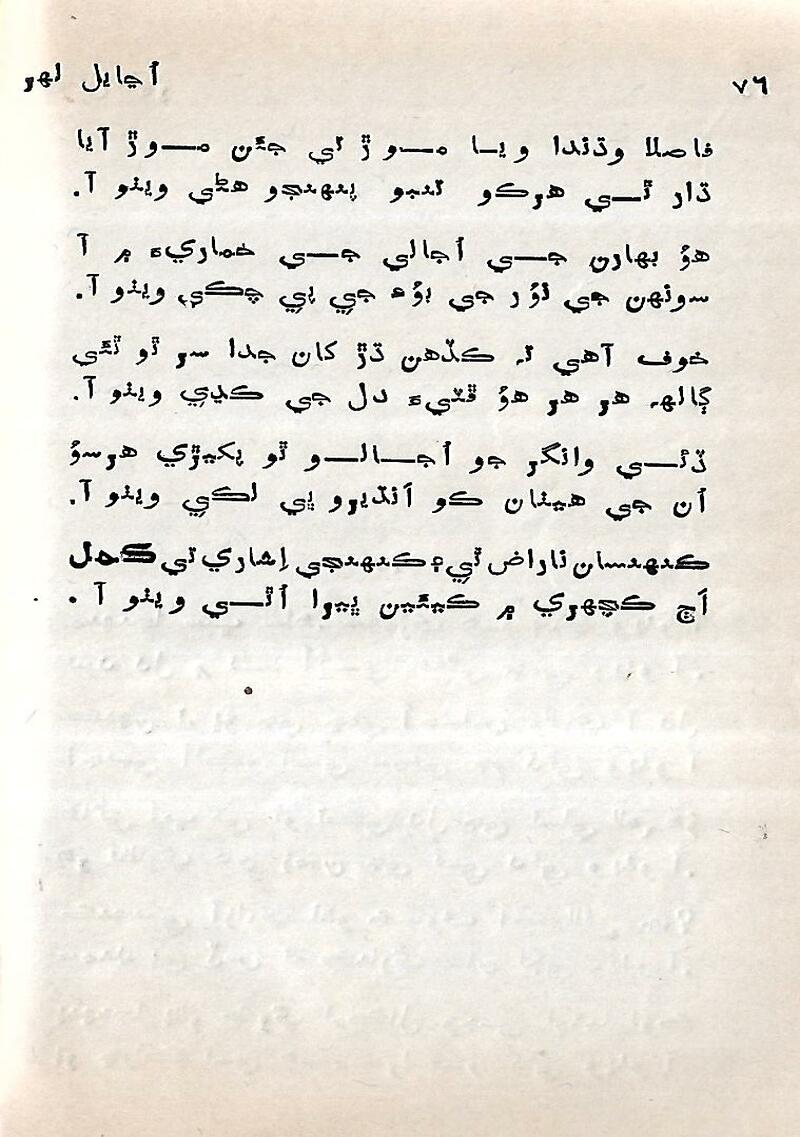 ٧٦
اڃايل لهر
فاصلا وڌندا ويا موڙ ئي جئن موڙ آيا
ڌار ٿي هرڪو تنبو پنهنجو هڻي ويٺو آ.
هوُ بهارن جي اُجالي جي خماريءَ ۾ آ
سونهن جي نوُر جي بوُءِ جي پي چڪي ويٺو آ.
خوف آهي ته ڪڏهن ڌڙ کان جدا سر ٿو ٿئي
ڳالهه هر هر هوُ ڦٽيءَ دل جي ڪڍي ويٺو آ.
ڏئي وانگر جو اُجالو ٿو پکيڙي هرسوُ
اُن جي هيٺان ڪو اَنڌيرو پي لڪي ويٺو آ.
ڪنهنسان ناراض ٿي؟ ڪنهنجي اِشاري تي گهل
اڄ ڪچهري ۾ ڪيئين ڀيرا اُٿي ويٺو آ.